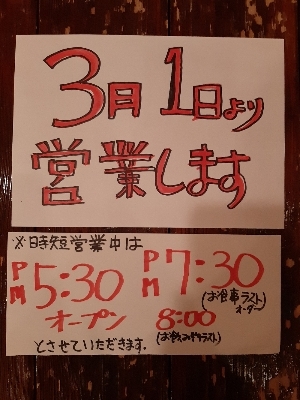 3月1日より
営業します
※時短営業中は
PM5:30 PM7:30
(お食事ラストオーダー)
オープン 8:00
(お飲み物ラスト)
とさせていただきます。